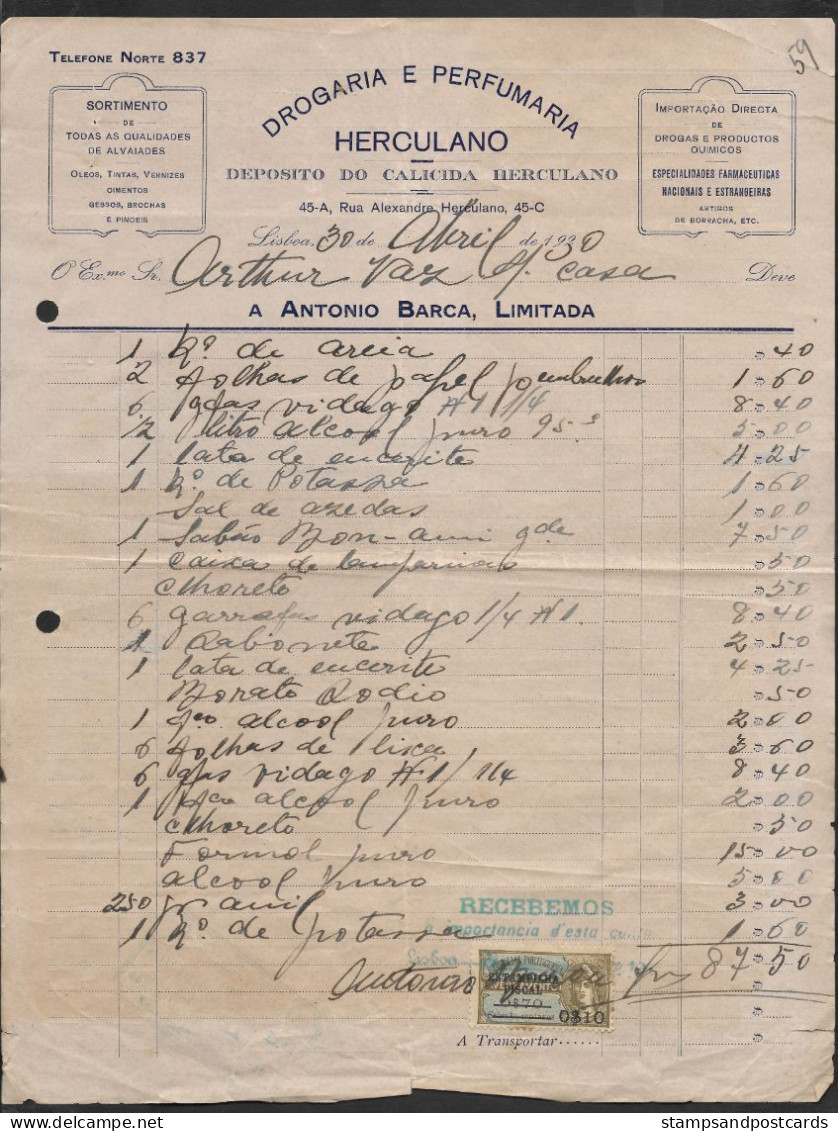 59
TELEFONE NORTE 837
DROGARIA E PERFUMARIA
HERCULANO
DEPOSITO DO CALICIDA HERCULANO
45-A, Rua Alexandre Herculano, 45-C
SORTIMENTO
DE
TODAS AS QUALIDADES
DE ALVAIADES
OLEOS, TINTAS, VERNIZES
CIMENTOS
GESSOS, BROCHAS
E PINCEIS
IMPORTAÇÃO DIRECTA
DE
DROGAS E PRODUCTOS
QUIMICOS
ESPECIALIDADES FARMACEUTICAS
NACIONAIS E ESTRANGEIRAS
ARTIGOS
DE BORRACHA, ETC.
Lisboa, 30 de Abril de 1930
O Ex.mo Sr. Arthur Vaz s/. casa Deve
A ANTONIO BARCA, LIMITADA
1 K.º de areia $40
2 folhas de papel 1$60
6 gfas vidago Nº1 1/4 8$40
1/2 litro alcool puro 95º 5$00
1 lata de encerite 4$25
1 K.º de Potassa 1$60
Sal de azedas 1$00
1 Sabão Bon-ami gde 7$50
1 caixa de lamparinas $50
Clhoreto $50
6 garrafas vidago 1/4 Nº1. 8$40
1 Sabonete 2$50
1 lata de encerite 4$25
Borato Sodio $50
1 alcool puro 2$00
6 folhas de lixa 3$60
6 gfas vidago Nº1/ 1/4 8$40
1 alcool puro 2$00
Clhoreto $50
Formol puro 15$00
alcool puro 5$00
250 gr anil 3$00
1 K.º de potassa 1$60
RECEBEMOS
a importancia d'esta conta
Lisboa
87$50
Antonio
ESTAMPILHA
FISCAL
0$70
0$10
A Transportar......
stampsandpostcards